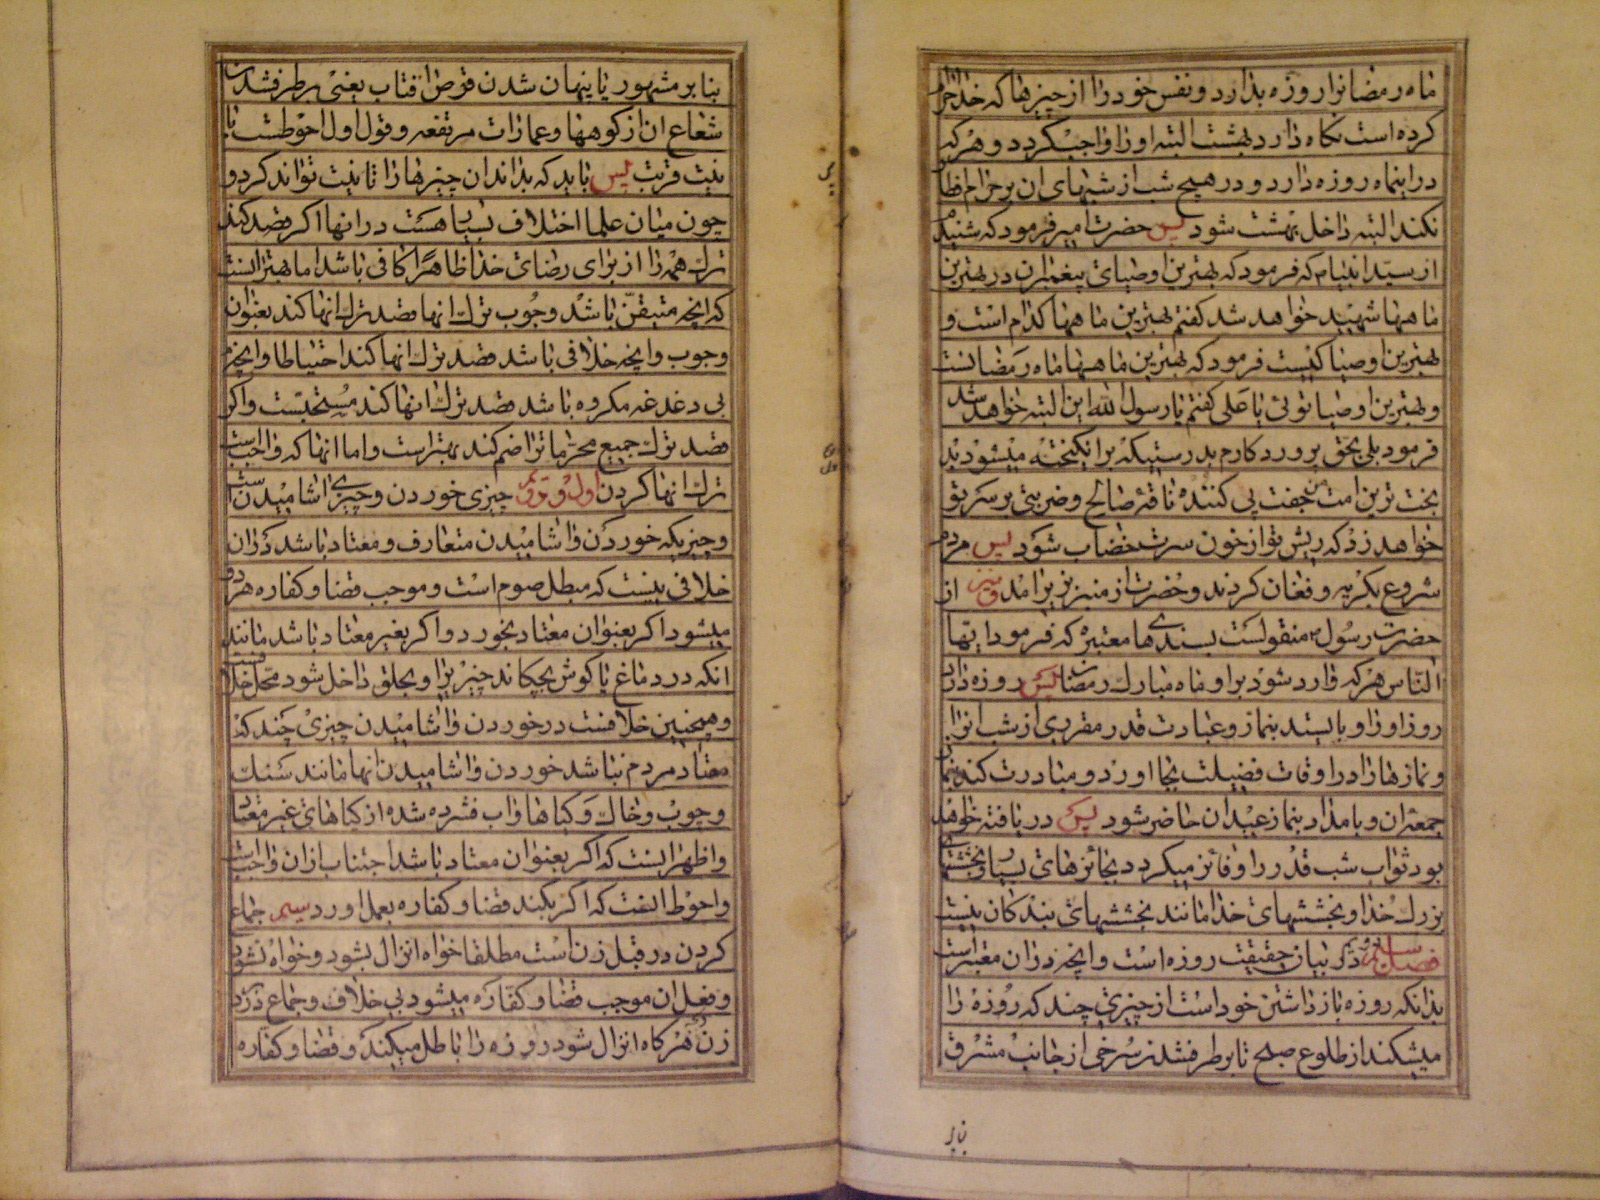 ماه رمضانرا روزه بدارد و نفس خود را از چیزها که خدا حرام
کرده است نگاه دارد بهشت البته او را واجب گردد و هرکه
در اینماه روزه دارد و در هیچ شب از شبهای ان بر حرام افطار
نکند البته داخل بهشت شود پس حضرت امیر فرمود که شنیدم
از سید انبیا که فرمود که بهترین اوصیای پیغمبران در بهترین
ماهها شهید خواهد شد گفتم بهترین ماهها کدام است و
بهترین اوصیا کیست فرمود که بهترین ماهها ماه رمضانست
و بهترین اوصیا توئی یا علی گفتم یا رسول الله این البته خواهد شد
فرمود بلی بحق پروردکارم بدرستیکه برانکیخته میشود بد
بخت ترین امت من جفت پی کننده ناقه صالح و ضربتی بر سر تو
خواهد زد که ریش تو از خون سرت خضاب شود پس مردم
شروع بکریه و فغان کردند و حضرت از منبر بزیر امد و نیز از
حضرت رسول منقولست بسندهای معتبره که فرمود ایها
الناس هرکه وارد شود بر او ماه مبارک رمضان پس روزه دارد
روز او را و بایستد بنماز و عبادت قدر مقرری از شب انرا
و نمازها را در اوقات فضیلت بجا اورد و مبادرت کند بنماز
جمعه ان و بامداد بنماز عید ان حاضر شود پس دریافته خواهد
بود ثواب شب قدر را و فائز میکردد بجائزهای
بزرک خدا و بخششهای خدا مانند بخششهای بندکان نیست
فصل در بیان حقیقت روزه است و انچه در ان معتبر است
بدانکه روزه بازداشتن خود است از چیزی چند که روزه را
میشکند از طلوع صبح تا برطرف شدن سرخی از جانب مشرق
بنابر
بنابر مشهور یا پنهان شدن قرص افتاب یعنی برطرف شدن
شعاع ان از کوهها و عمارات مرتفعه و قول اول احوطست با
نیت قربت پس باید که بداند ان چیزها را تا نیت تواند کرد و
چون میان علما اختلاف بسیار هست در انها اکر قصد کند
ترک همه را از برای رضای خدا ظاهرا کافی باشد اما بهتر انست
که انچه متیقن باشد وجوب ترک انها قصد ترک انها کند بعنوان
وجوب و انچه خلافی باشد قصد ترک انها کند احتیاطا و انچه
بی دغدغه مکروه باشد قصد ترک انها کند مستحبست و اکر
قصد ترک جمیع محرمات را ضم کند بهتر است و اما انها که واجب است
ترک انها کردن اول و دویم چیزی خوردن و چیزی اشامیدن است
و چیزیکه خوردن و اشامیدن متعارف و معتاد باشد در ان
خلافی نیست که مبطل صوم است و موجب قضا و کفاره هر دو
میشود اکر بعنوان معتاد بخورد و اکر بغیر معتاد باشد مانند
انکه در دماغ یا کوش بچکاند چیزیرا و بحلق داخل شود محل خلافست
و همچنین خلافست در خوردن و اشامیدن چیزی چند که
معتاد مردم نباشد خوردن و اشامیدن انها مانند سنک
و چوب و خاک و کیاها و اب فشرده شده از کیاهای غیر معتاد
و اظهر اینست که اکر بعنوان معتاد باشد اجتناب از ان واجب است
و احوط انست که اکر بکند قضا و کفاره بعمل اورد سیم جماع
کردن در قبل زن است مطلقا خواه انزال بشود و خواه نشود
و فعل ان موجب قضا و کفاره میشود بی خلاف و جماع در دبر
زن هرکاه انزال شود روزه را باطل میکند و قضا و کفاره